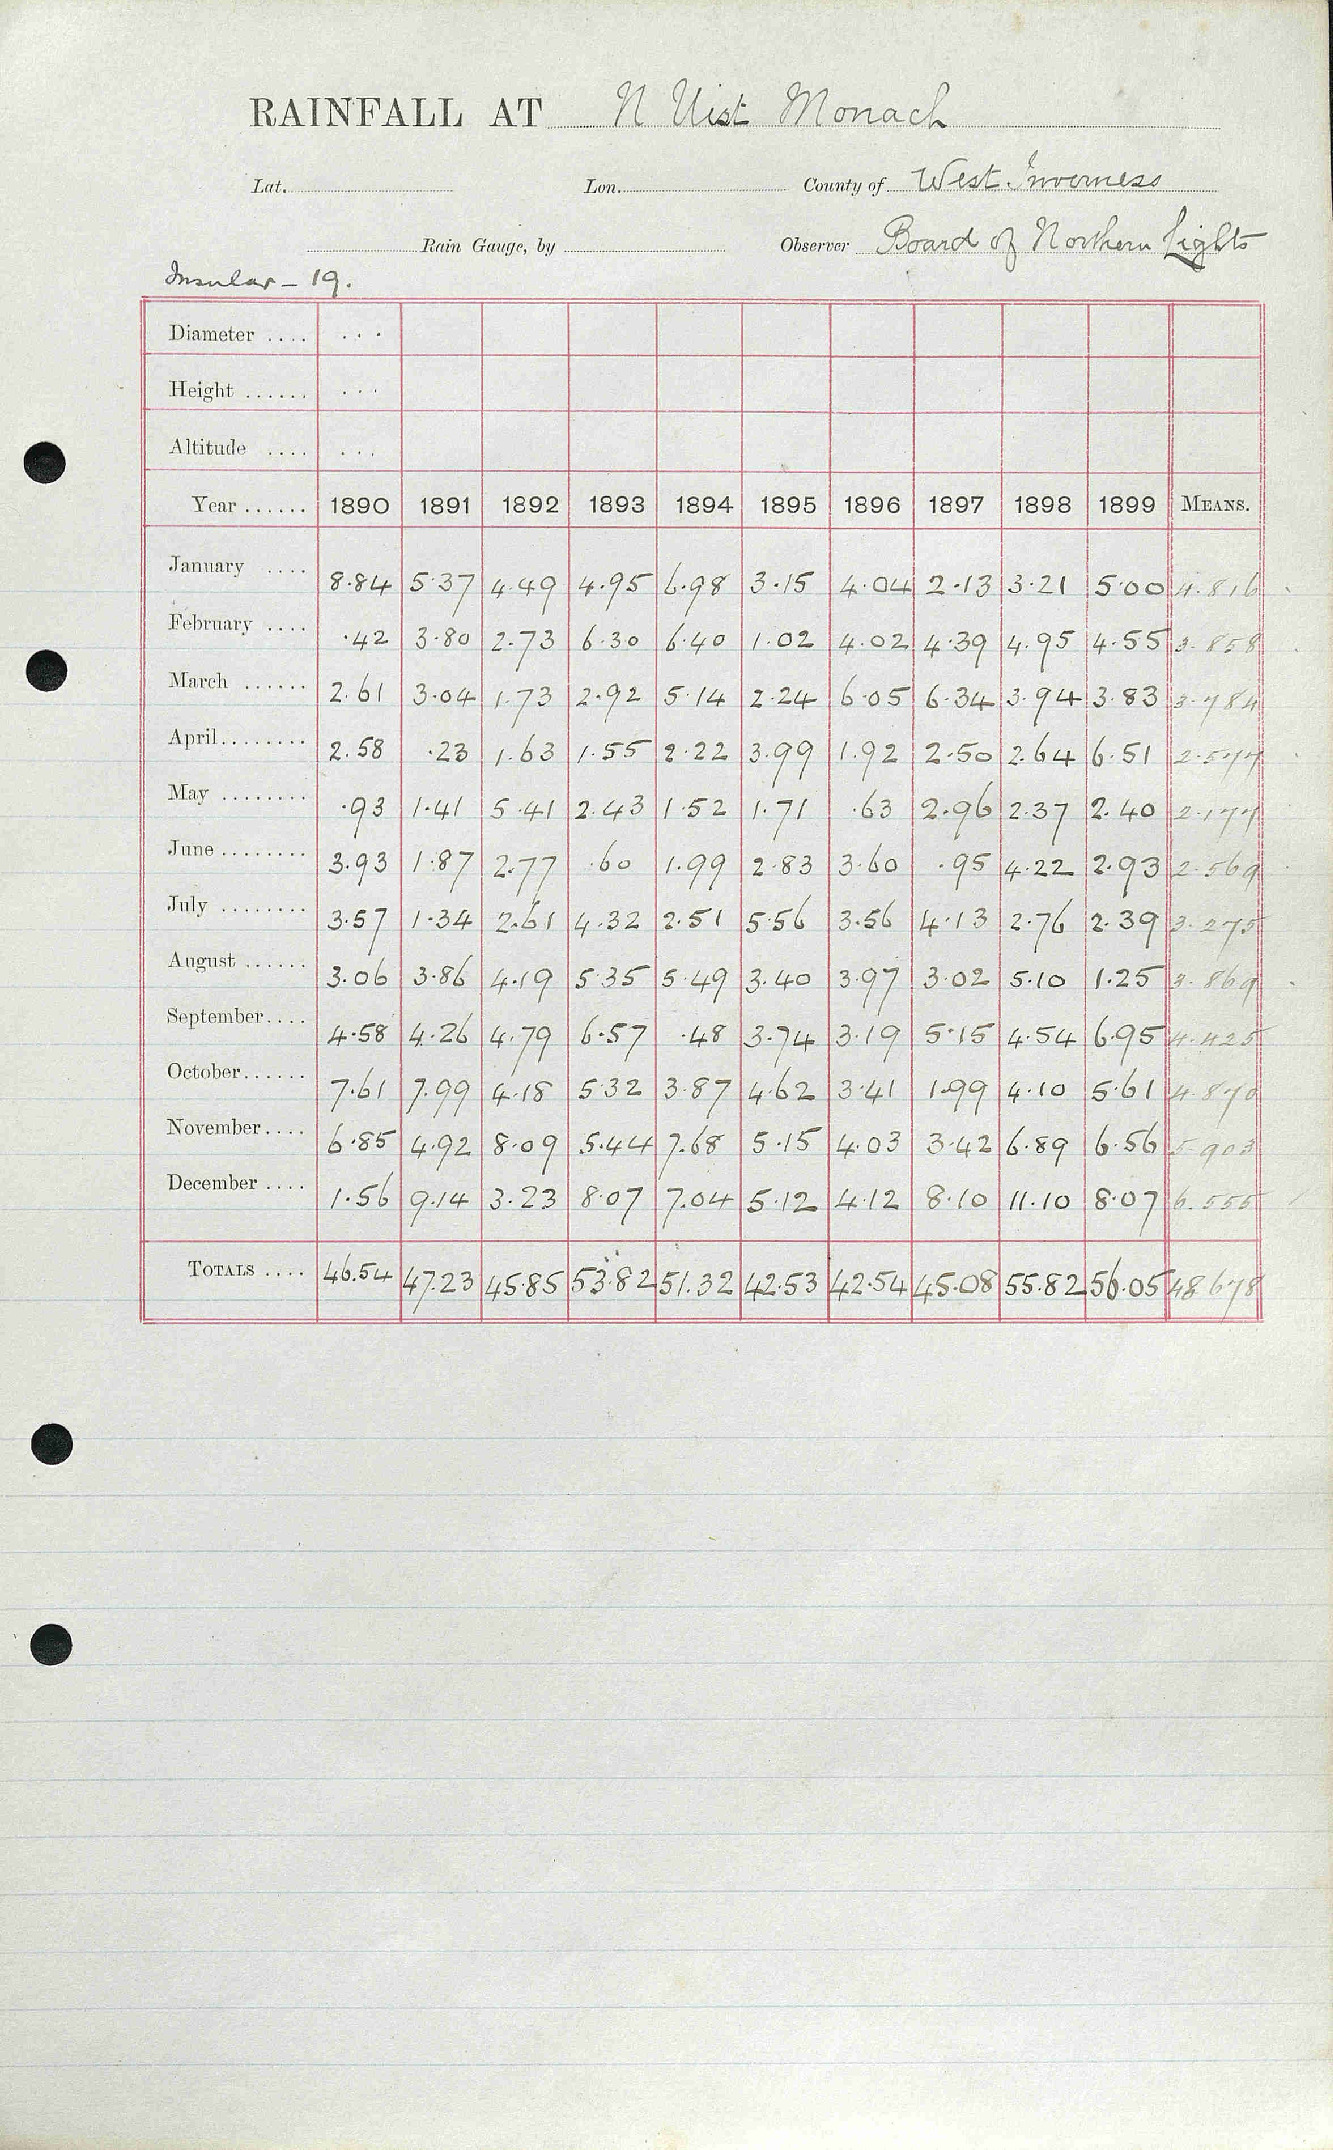 RAINFALL AT N Uist Monach
Lat. Lon. County of West Inverness
Rain Gauge, by Observer Board of Northern Lights
Insular - 19.
Diameter .... ...
Height ...... ...
Altitude .... ...
Year ...... 1890 1891 1892 1893 1894 1895 1896 1897 1898 1899 MEANS.
January .... 8.84 5.37 4.49 4.95 6.98 3.15 4.04 2.13 3.21 5.00 4.816
February .... .42 3.80 2.73 6.30 6.40 1.02 4.02 4.39 4.95 4.55 3.858
March ...... 2.61 3.04 1.73 2.92 5.14 2.24 6.05 6.34 3.94 3.83 3.784
April........ 2.58 .23 1.63 1.55 2.22 3.99 1.92 2.50 2.64 6.51 2.577
May ........ .93 1.41 5.41 2.43 1.52 1.71 .63 2.96 2.37 2.40 2.177
June ........ 3.93 1.87 2.77 .60 1.99 2.83 3.60 .95 4.22 2.93 2.569
July ........ 3.57 1.34 2.61 4.32 2.51 5.56 3.56 4.13 2.76 2.39 3.275
August ...... 3.06 3.86 4.19 5.35 5.49 3.40 3.97 3.02 5.10 1.25 3.869
September.... 4.58 4.26 4.79 6.57 .48 3.74 3.19 5.15 4.54 6.95 4.425
October...... 7.61 7.99 4.18 5.32 3.87 4.62 3.41 1.99 4.10 5.61 4.870
November.... 6.85 4.92 8.09 5.44 7.68 5.15 4.03 3.42 6.89 6.56 5.903
December .... 1.56 9.14 3.23 8.07 7.04 5.12 4.12 8.10 11.10 8.07 6.555
TOTALS .... 46.54 47.23 45.85 53.82 51.32 42.53 42.54 45.08 55.82 56.05 48.678